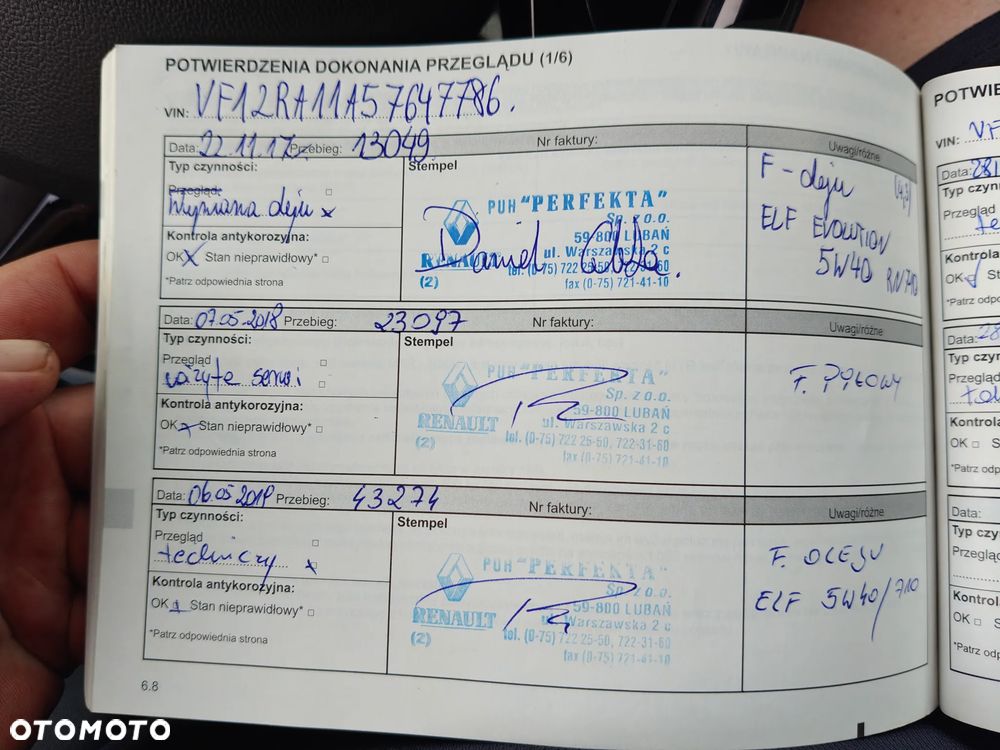 POTWIERDZENIA DOKONANIA PRZEGLĄDU (1/6)
VIN: VF12RA11A57647786.
Data: 22.11.17r. Przebieg: 13049 Nr faktury: Uwagi/różne
Typ czynności:
Przegląd:
Wymiana oleju x
Kontrola antykorozyjna:
OK X Stan nieprawidłowy*
*Patrz odpowiednia strona
Stempel
PUH "PERFEKTA"
Sp. z o.o.
59-800 LUBAŃ
ul. Warszawska 2 c
tel. (0-75) 722 25-50, 722-31-60
fax (0-75) 721-41-10
RENAULT
(2)
Daniel
F - oleju
ELF EVOLUTION
5W40 RN710
Data: 07.05.2018 Przebieg: 23097 Nr faktury: Uwagi/różne
Typ czynności:
Przegląd
Kontrola antykorozyjna:
OK Stan nieprawidłowy*
*Patrz odpowiednia strona
Stempel
PUH "PERFEKTA"
Sp. z o.o.
59-800 LUBAŃ
ul. Warszawska 2 c
tel. (0-75) 722 25-50, 722-31-60
fax (0-75) 721-41-10
RENAULT
(2)
F. PYŁKOWY
Data: 06.05 2019 Przebieg: 43274 Nr faktury: Uwagi/różne
Typ czynności:
Przegląd
techniczny x
Kontrola antykorozyjna:
OK Stan nieprawidłowy*
*Patrz odpowiednia strona
Stempel
PUH "PERFEKTA"
Sp. z o.o.
59-800 LUBAŃ
ul. Warszawska 2 c
tel. (0-75) 722 25-50, 722-31-60
fax (0-75) 721-41-10
RENAULT
(2)
F. OLEJU
ELF 5W40/710
6.8
POTWIE
VIN: VF
Data: 281
Typ czyn
Przegląd
Kontrola
OK
*Patrz odpo
Data: 28
Typ czyn
Przegląd
Kontrola
OK S
*Patrz odp
Data:
Typ czy
Przegląd
Kontrol
OK S
*Patrz odp
OTOMOTO